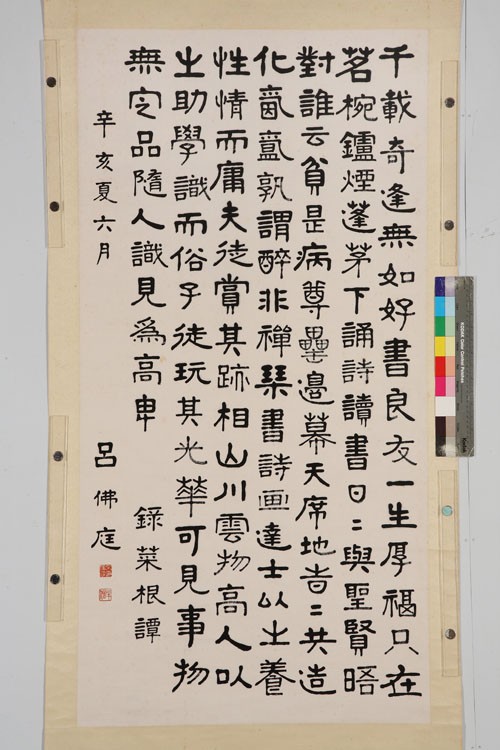 千載奇逢無如好書良友一生厚福只在
茗椀鑪煙蓬茅下誦詩讀書日〻與聖賢晤
對誰云貧是病尊罍邊幕天席地旹〻共造
化氤氳孰謂醉非禪琴書詩画達士以之養
性情而庸夫徒賞其跡相山川雲物高人以
之助學識而俗子徒玩其光華可見事物
無定品隨人識見為高卑
錄菜根譚
辛亥夏六月
呂佛庭